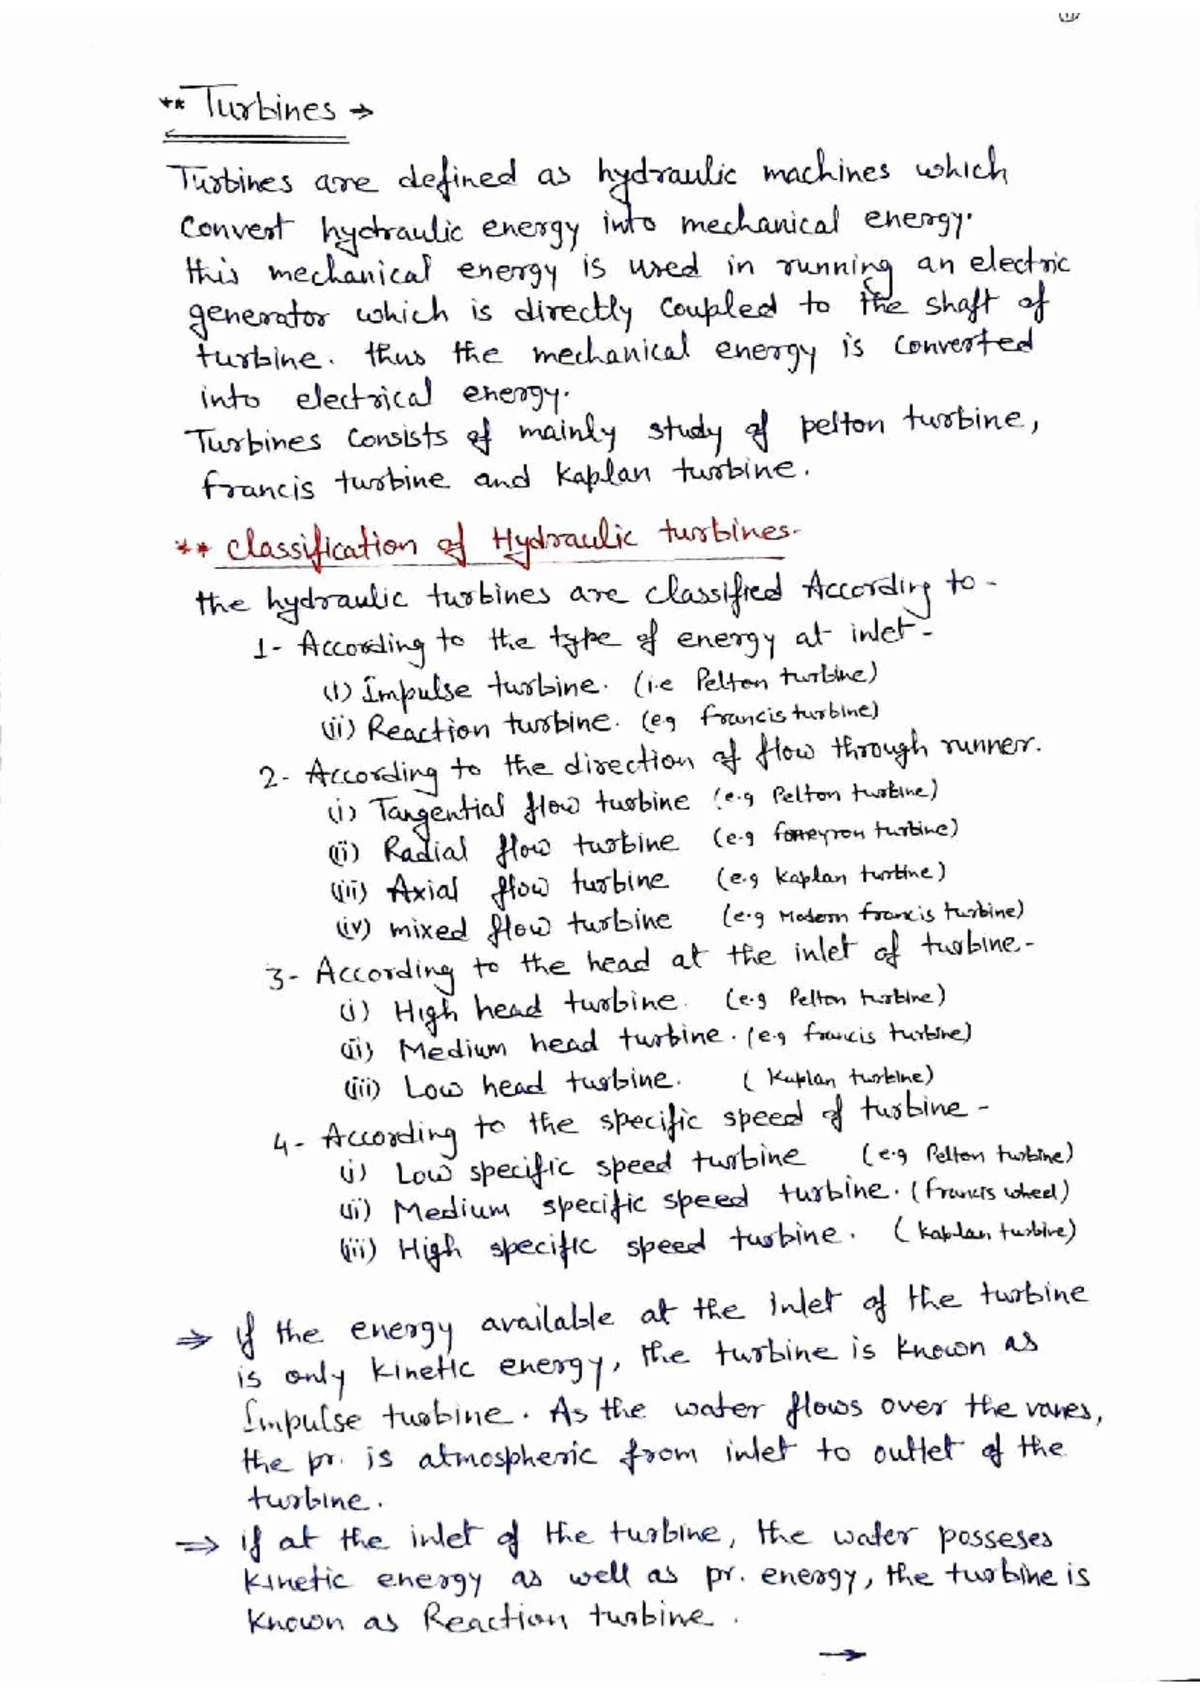 ** Turbines →
Turbines are defined as hydraulic machines which
Convert hydraulic energy into mechanical energy.
this mechanical energy is used in running an electric
generator which is directly coupled to the shaft of
turbine. thus the mechanical energy is converted
into electrical energy.
Turbines Consists of mainly study of pelton turbine,
francis turbine and kaplan turbine.
** classification of Hydraulic turbines-
the hydraulic turbines are classified According to -
1- According to the type of energy at inlet -
(i) Impulse turbine. (i.e Pelton turbine)
(ii) Reaction turbine. (eg francis turbine)
2- According to the direction of flow through runner.
(i) Tangential flow turbine (e.g Pelton turbine)
(ii) Radial flow turbine (e-g forneyron turbine)
(iii) Axial flow turbine (e.g Kaplan turbine)
(iv) mixed flow turbine (e.g Modern francis turbine)
3- According to the head at the inlet of turbine-
(i) High head turbine. (e.g Pelton turbine)
(ii) Medium head turbine. (e.g francis turbine)
(iii) Low head turbine. ( Kaplan turbine)
4- According to the specific speed of turbine -
(i) Low specific speed turbine (e.g Pelton turbine)
(ii) Medium specific speed turbine. (francis wheel)
(iii) High specific speed turbine. ( kaplan turbine)
⇒ if the energy available at the inlet of the turbine
is only kinetic energy, the turbine is known as
Impulse turbine. As the water flows over the vanes,
the pr. is atmospheric from inlet to outlet of the
turbine.
⇒ if at the inlet of the turbine, the water posseses
kinetic energy as well as pr. energy, the turbine is
known as Reaction turbine.
→